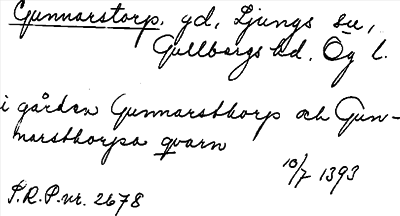 Gunnarstorp. gd, Ljungs sn,
Gullbergs hd. Ög l.
i gården Gunnarsthorp och Gun-
narsthorpa qvarn
10/7 1393
S.R.P.nr. 2678